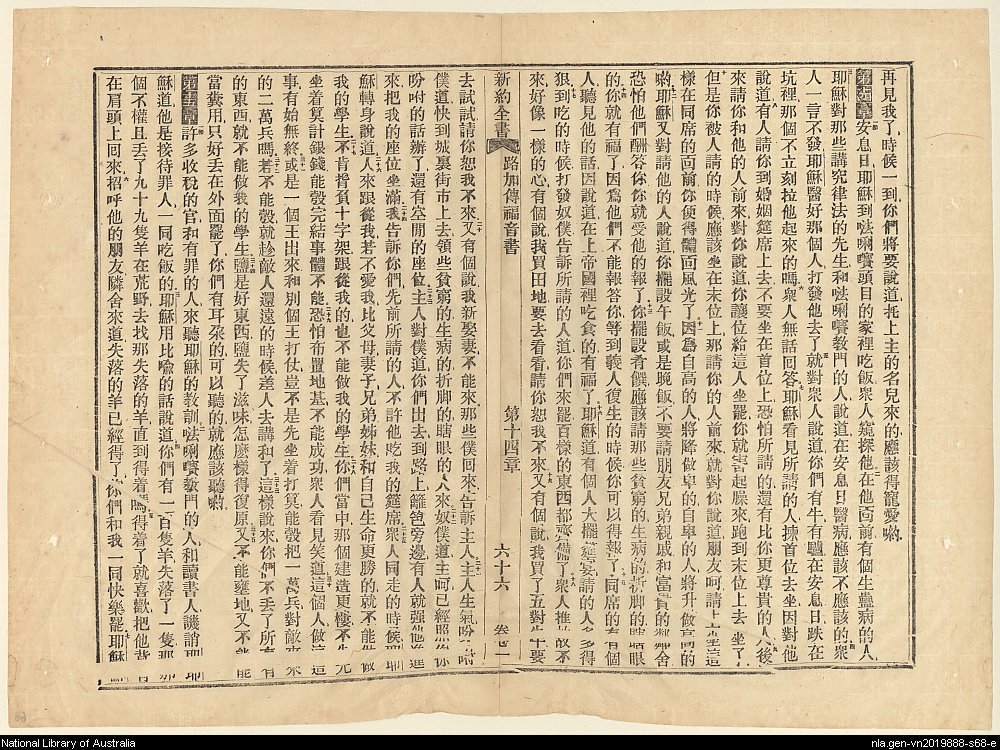 再見我了時候一到你們將要說道托上主的名兒來的應該得寵愛喲
第十四章安息日耶穌到𠵽唎㘔頭目的家裡吃飯衆人窺探他在他面前有個生蠱病的人
耶穌對那些講究律法的先生和𠵽唎㘔教門的人說道在安息日醫病應該不應該的衆
人一言不發耶穌醫好那個人打發他去了就對衆人說道你們有牛有驢在安息日跌在
坑裡那個不立刻拉他起來的嗎衆人無話回答耶穌看見所請的人揀首位去坐因對他
說道有人請你到婚姻筵席上去不要坐在首位上恐怕所請的還有比你更尊貴的人後
來請你和他的人前來對你說道你讓位給這人坐罷你就害起臊來跑到末位上去坐了
但是你被人請的時候應該坐在末位上那請你的人前來就對你說道朋友呵請上坐這
樣在同席的面前你便得體面風光了因爲自高的人將降做卑的自卑的人將升做高的
喲耶穌又對請他的人說道你擺設午飯或是晚飯不要請朋友兄弟親戚和富貴的鄰舍
恐怕他們酬答你你就受他的報了你擺設肴饌應該請那些貧窮的生病的折脚的瞎眼
的你就有福了因爲他們不能報答你等到義人復生的時候你可以得報了同席的有個
人聽見他的話因說道在上帝國裡吃食的有福了耶穌道有個人大擺筵宴請的人多得
狠到吃的時候打發奴僕告訴所請的人道你們來罷百樣的東西都齊備了衆人推故不
來好像一樣的心有個說我買田地要去看看請你恕我不來又有個說我買了五對牛要
新約全書 路加傳福音書 第十四章 六十六
去試試請你恕我不來又有個說我新娶妻不能來那些僕回來告訴主人主人生氣吩咐
僕道快到城裏街市上去領些貧窮的生病的折脚的瞎眼的人來奴僕道主呵已經照你
吩咐的話辦了還有空閒的座位主人對僕道你們出去到路上籬笆旁邊有人就强他進
來把我的座位坐滿我告訴你們先前所請的人不許他吃我的筵席衆人同走的時候耶
穌轉身說道人來跟從我若不愛我比父母妻子兄弟姊妹和自己生命更勝的就不能做
我的學生不肯背負十字架跟從我的也不能做我的學生你們當中那個建造更樓不先
坐着算計銀錢能彀完結事體不能恐怕布置地基不能成功衆人看見笑道這個人做這
事有始無終或是一個王出來和別個王打仗豈不是先坐着打算能彀把一萬兵對敵來
的二萬兵嗎若不能彀就趁敵人還遠的時候差人去講和了這樣說來你們不丟了所有
的東西就不能做我的學生鹽是好東西鹽失了滋味怎麼樣得復原又不能壅地又不能
當糞用只好丟在外面罷了你們有耳朶的可以聽的就應該聽喲
第十五章許多收稅的官和有罪的人來聽耶穌的教訓𠵽唎㘔教門的人和讀書人譏誚耶
穌道他是接待罪人一同吃飯的耶穌用比喻的話說道你們有一百隻羊失落了一隻那
個不權且丟了九十九隻羊在荒野去找那失落的羊直到得着嗎得着了就喜歡把他背
在肩頭上回來招呼他的朋友隣舍來道失落的羊已經得了你們和我一同快樂罷耶穌
National Library of Australia
nla.gen-vn2019888-s68-e